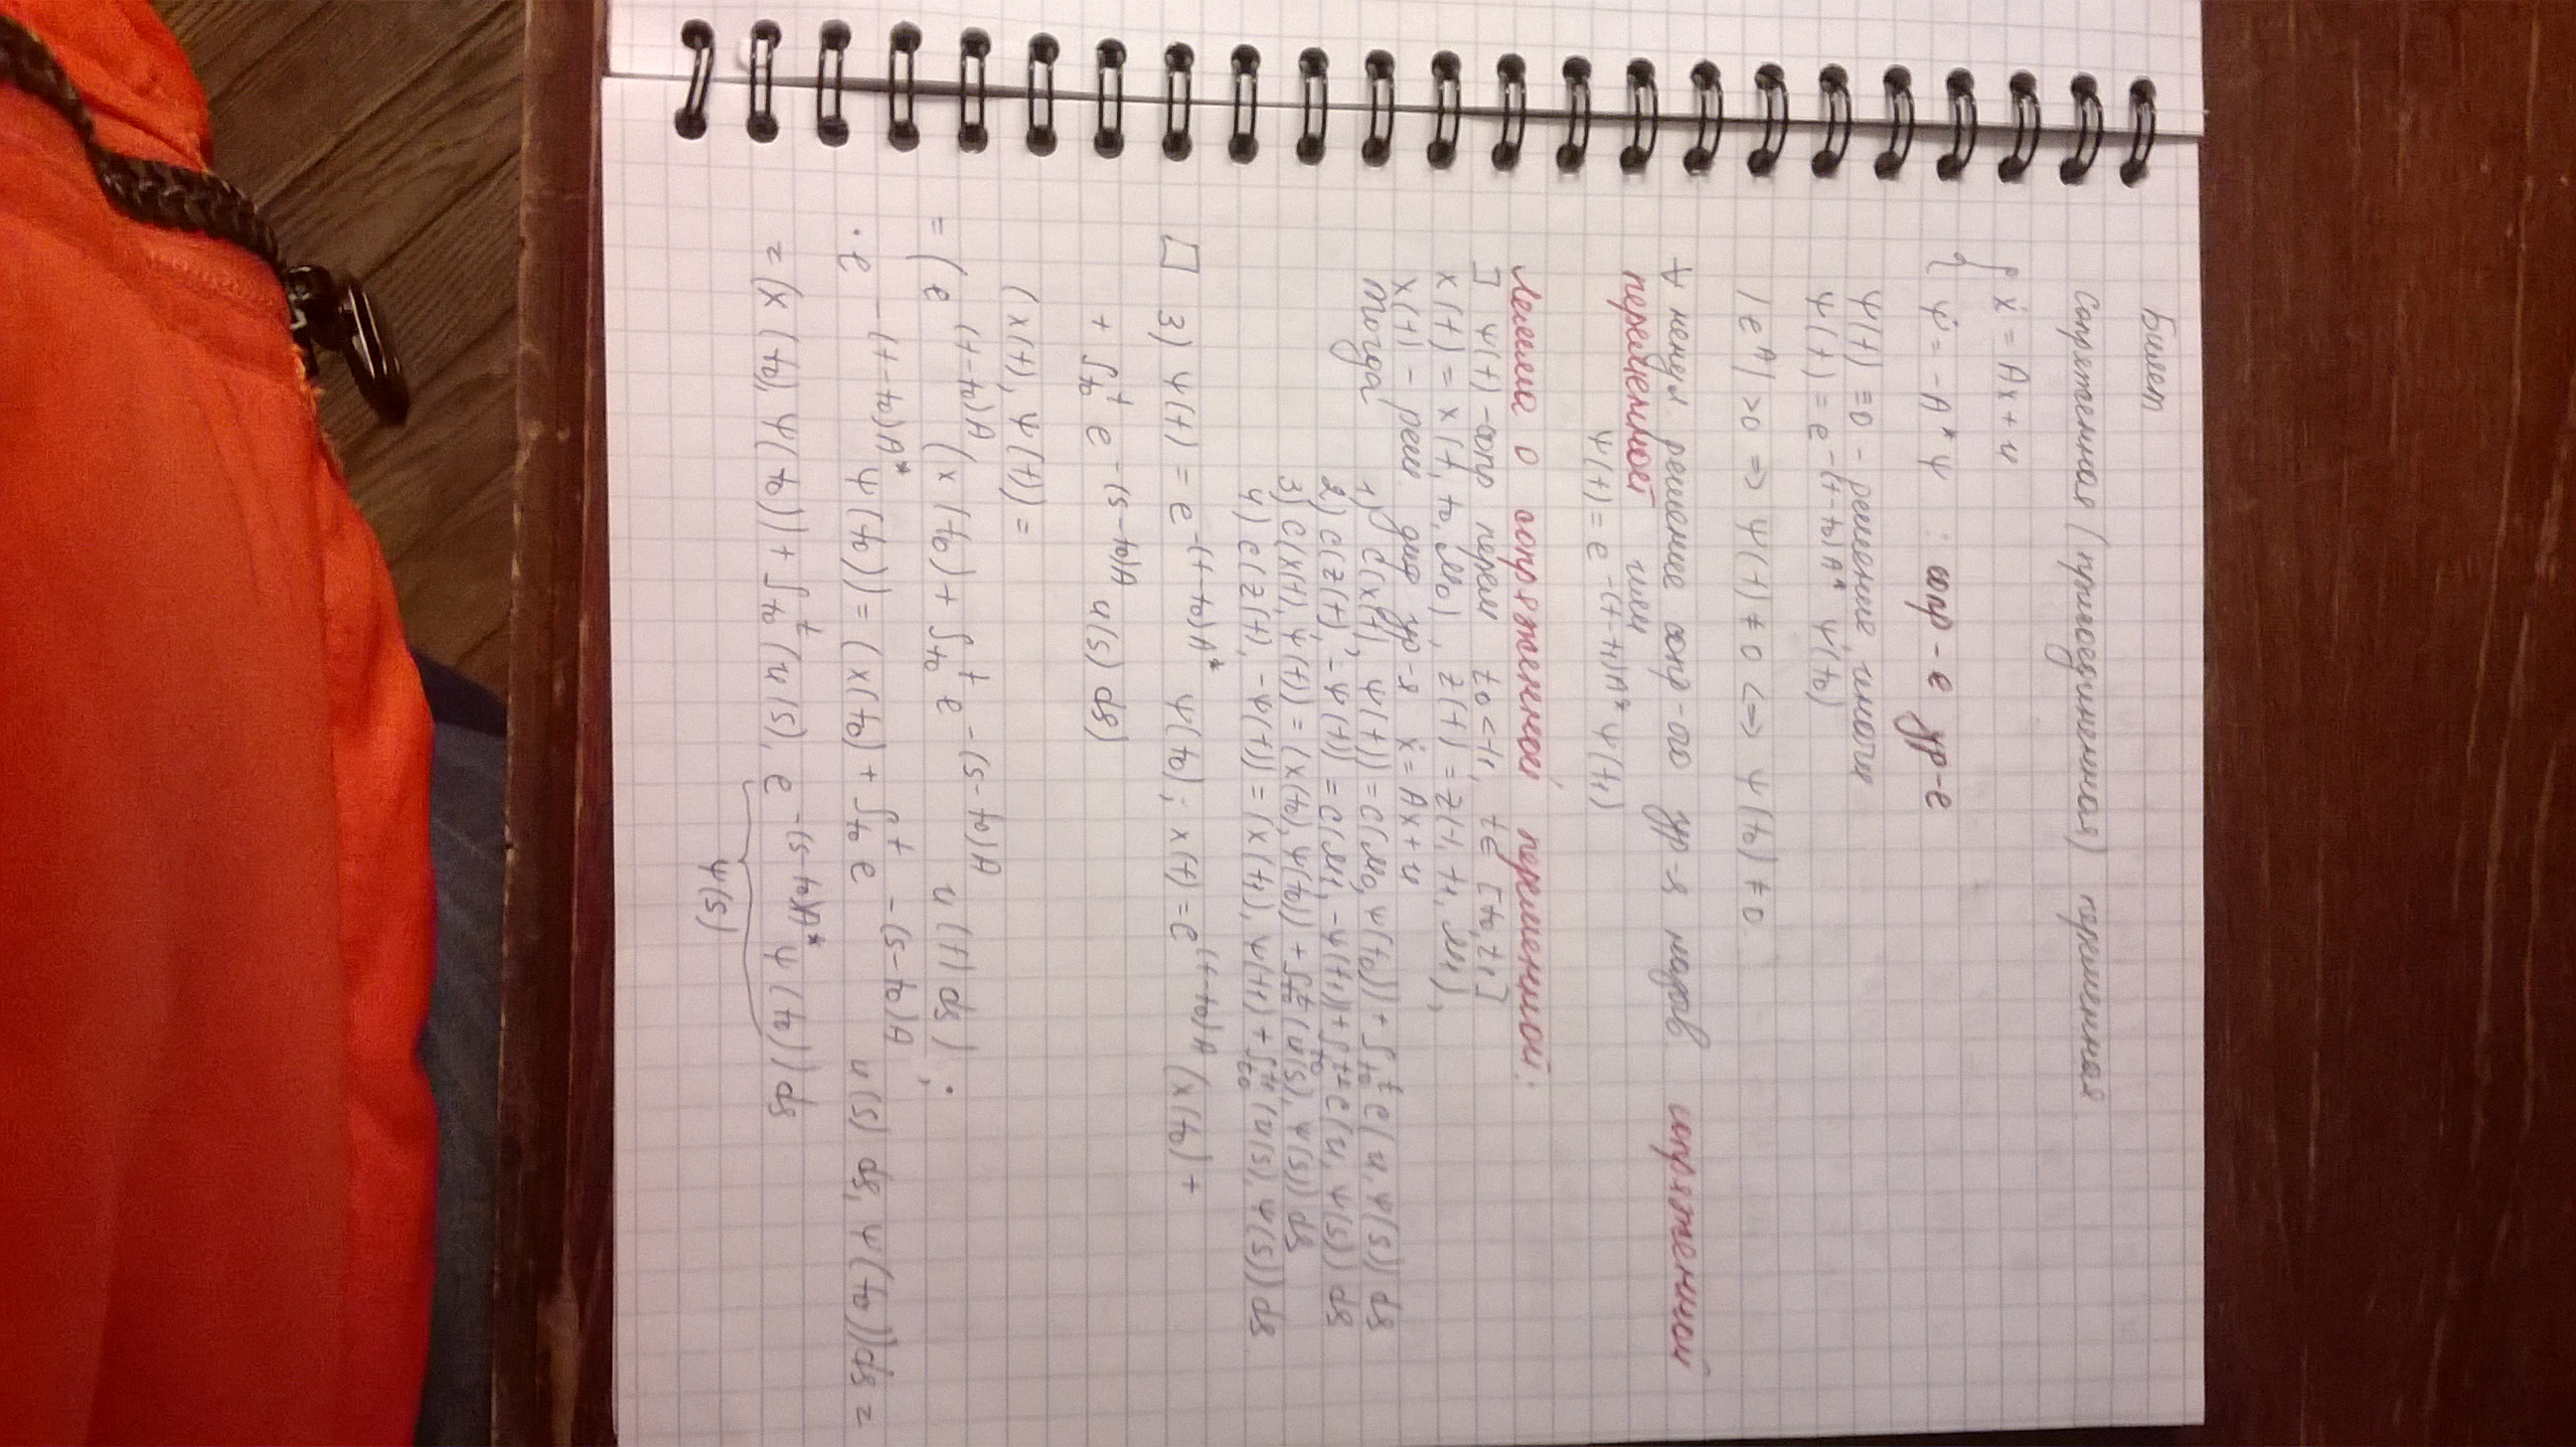 Билет
Сопряженная (присоединенная) переменная
{ ẋ = Ax + u
ψ̇ = -A*ψ : сопр-е ур-е
ψ(t) ≡ 0 - решение, иначе
ψ(t) = e^{-(t-t₀)A*} ψ(t₀)
|e^A| > 0 => ψ(t) ≠ 0 <=> ψ(t₀) ≠ 0
∀ ненул. решение сопр-ого ур-я назыв. сопряженной
переменной
ψ(t) = e^{-(t-t₁)A*} ψ(t₁)
Лемма о сопряженной переменной:
] ψ(t) - сопр перем t₀ < t₁, t ∈ [t₀, t₁]
X(t) = X(t, t₀, M₀), Z(t) = Z(t, t₁, M₁),
x(t) - реш диф ур-я ẋ = Ax + u
тогда 1) C(X(t), ψ(t)) = C(M₀, ψ(t₀)) + ∫_{t₀}^{t} C(U, ψ(s)) ds
2) C(Z(t), -ψ(t)) = C(M₁, -ψ(t₁)) + ∫_{t}^{t₁} C(U, ψ(s)) ds
3) C(x(t), ψ(t)) = (x(t₀), ψ(t₀)) + ∫_{t₀}^{t} (u(s), ψ(s)) ds
4) C(Z(t), -ψ(t)) = (x(t₁), ψ(t₁) + ∫_{t₀}^{t₁} (u(s), ψ(s)) ds
[] 3) ψ(t) = e^{-(t-t₀)A*} ψ(t₀); x(t) = e^{(t-t₀)A} (x(t₀) +
+ ∫_{t₀}^{t} e^{-(s-t₀)A} u(s) ds)
(x(t), ψ(t)) =
= (e^{(t-t₀)A} (x(t₀) + ∫_{t₀}^{t} e^{-(s-t₀)A} u(t) ds) ;
· e^{-(t-t₀)A*} ψ(t₀)) = (x(t₀) + ∫_{t₀}^{t} e^{-(s-t₀)A} u(s) ds, ψ(t₀)) ds =
= (x(t₀), ψ(t₀)) + ∫_{t₀}^{t} (u(s), e^{-(s-t₀)A*} ψ(t₀)) ds
ψ(s)